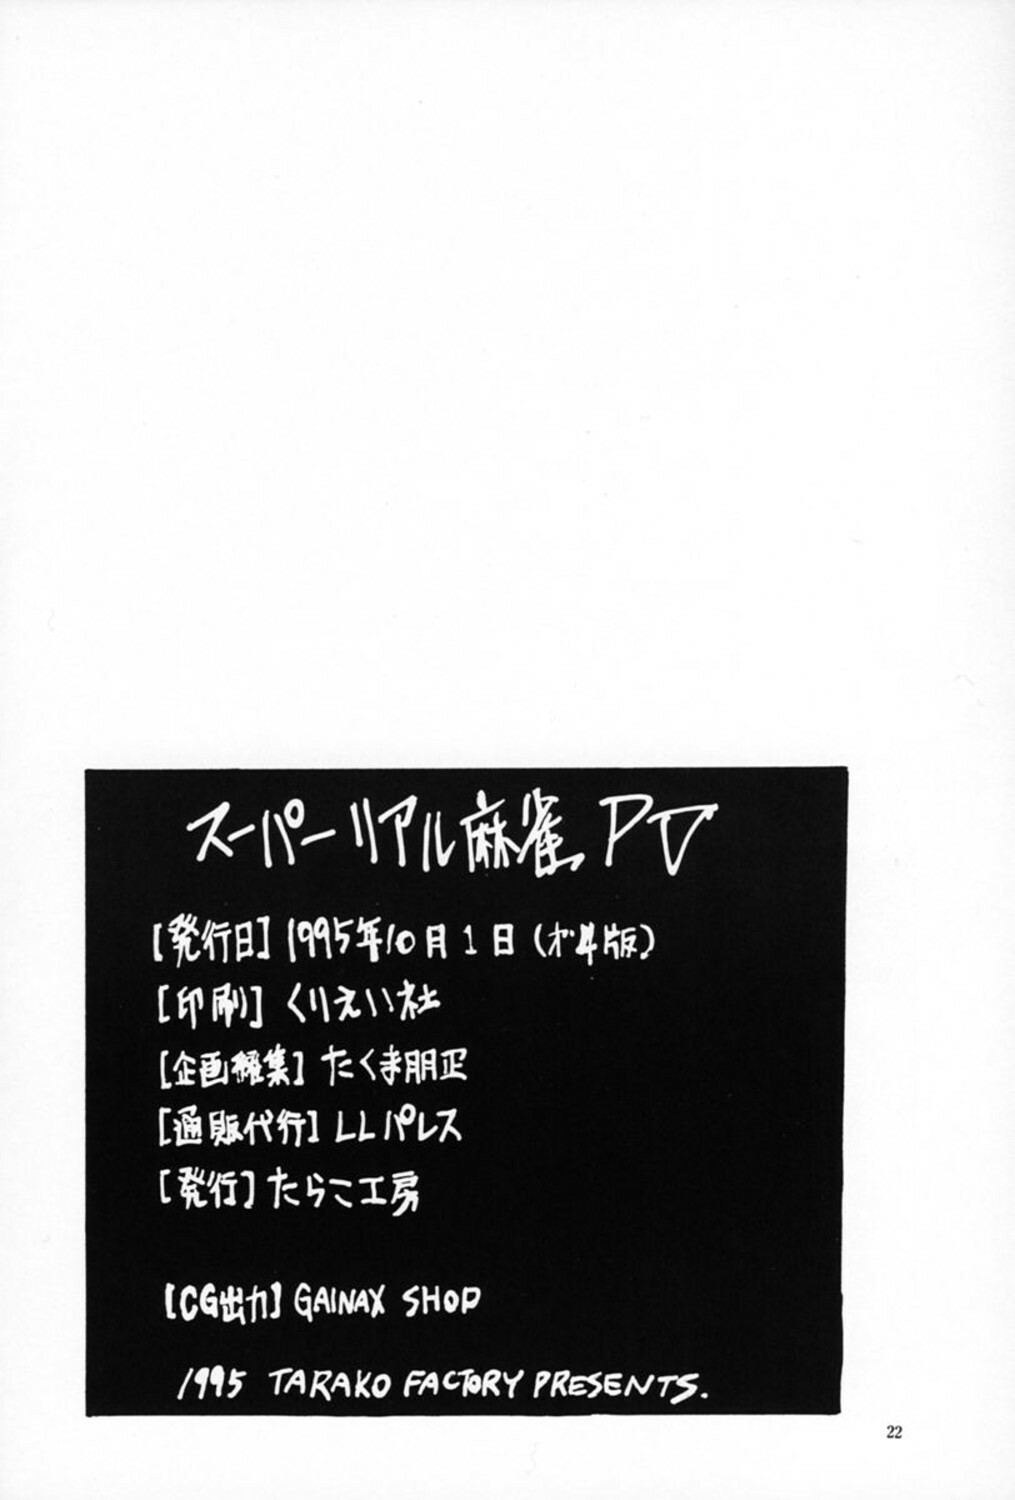 スーパーリアル麻雀PV
[発行日]1995年10月1日(オ4版)
[印刷]くりえい社
[企画編集]たくま朋正
[通販代行]LLパレス
[発行]たらこ工房
[CG出力]GAINAX SHOP
1995 TARAKO FACTORY PRESENTS.
22